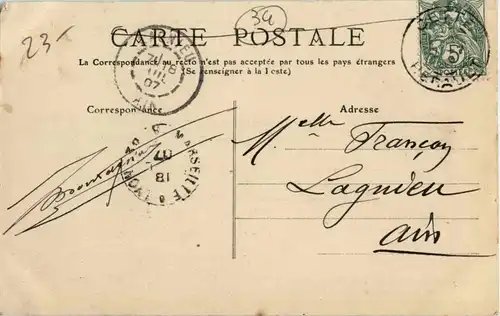 23-
34
CARTE POSTALE
La Correspondance au recto n'est pas acceptée par tous les pays étrangers
(Se renseigner à la Poste)
Correspondance
Adresse
Melle Françon
Lagnieu
Ain
07
AIN
MARSEILLE A LYON
18
07
5
HERAULT